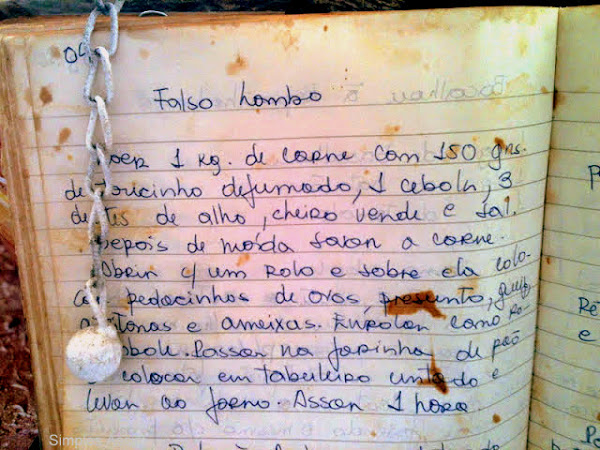 09
Falso Lombo
1 kg. de carne com 150 grs.
de toicinho defumado, 1 cebola, 3
de alho, cheiro verde e sal.
Depois de moída sovar a carne.
Abrir c/ um rolo e sobre ela colo-
pedacinhos de ovos, presunto,
e ameixas. Enrolar como ro-
Passar na farinha de pão
colocar em tabuleiro untado e
levar ao forno. Assar 1 hora